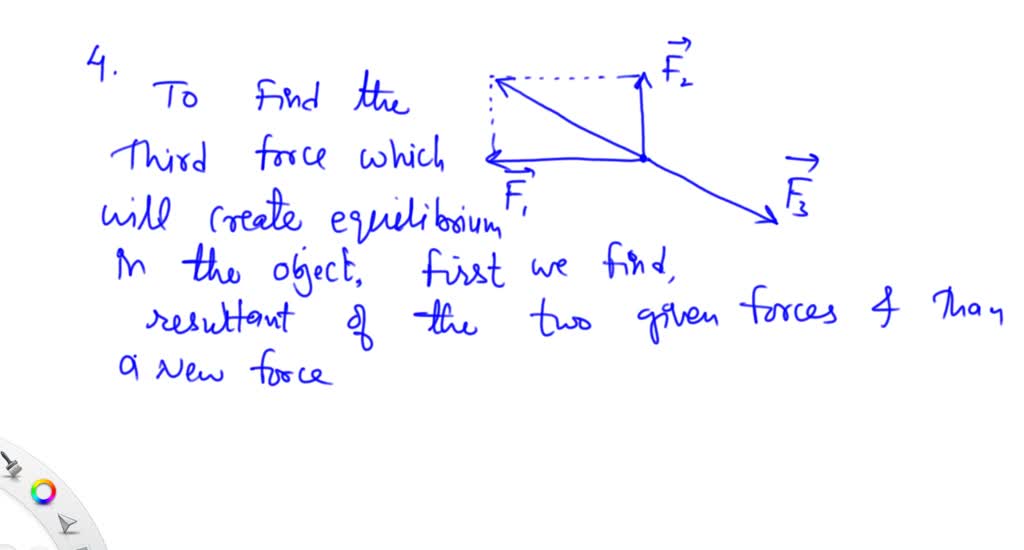 4.
To find the
F₂
Third force which
F₃
F₁
will create equilibrium
in the object, first we find,
resultant of the two given forces & Than
a New force